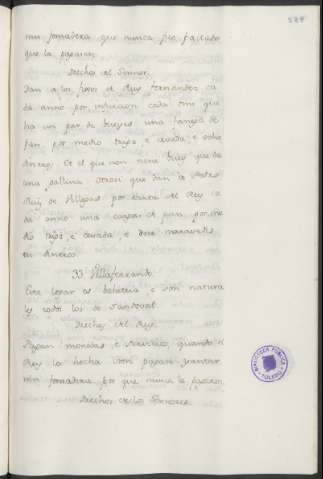 nin fonsadera que nunca fue fallado
que la pagaran.
Derechos del Señor.
Dan a los fijos de Ruy Fernandez ca
da anno por infurcion cada uno que
ha un par de bueyes una fanega de
pan, por medio trigo, e cevada, e ocho
dineros. Et el que non tiene buey que de
una gallina. Otrosi que dan a
Ruiz de Villegas por del Rey ca
da anno una carga de pan, por me
dio trigo, e cevada, e doce maravedis
en dineros.
33. Villaferrando
Este logar es behetria, e son natura
les todos los de Sandoval.
Derechos del Rey.
Pagan monedas, e servicios, quando el
Rey los hecha non pagan yantar
nin fonsadera, por que nunca la pagaron.
Derechos de los Señores.
BIBLIOTECA PUBLICA
TOLEDO